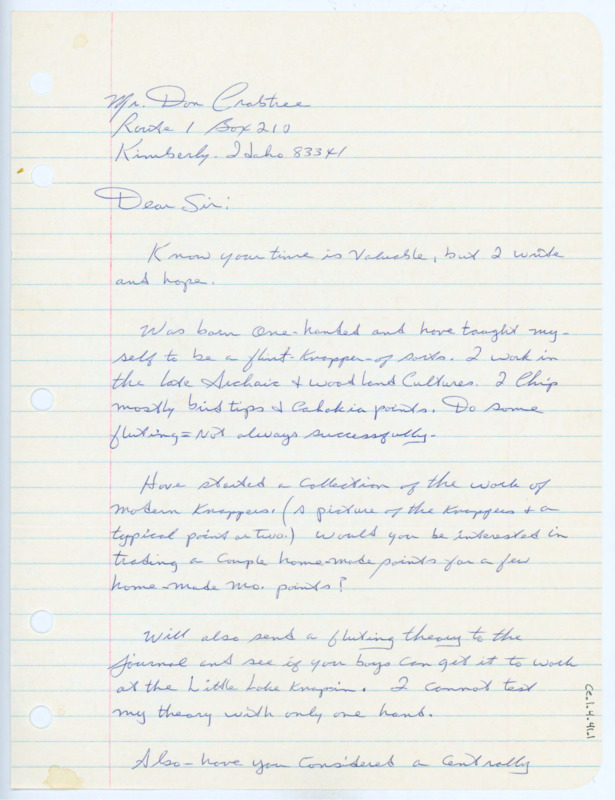 Mr. Don Crabtree
Route 1 Box 210
Kimberly. Idaho 83341
Dear Sir:
Know your time is Valuable, but I write
and hope.
Was born One-handed and have taught my-
self to be a flint-Knapper-of sorts. I work in
the Late Archaic & woodland Cultures. I Chip
mostly bird tips & Cahokia points. Do some
fluting = Not always successfully.
Have started a Collection of the work of
Modern Knappers. (A picture of the Knappers & a
typical point or two.) Would you be interested in
trading a Couple home-made points for a few
home-made Mo. points?
Will also send a fluting theory to the
Journal and see if you boys Can get it to work
at the Little Lake Knapin. I Cannot test
my theory with only one hand.
Also-have you Considered a Centrally
Cc.1.4.41.1